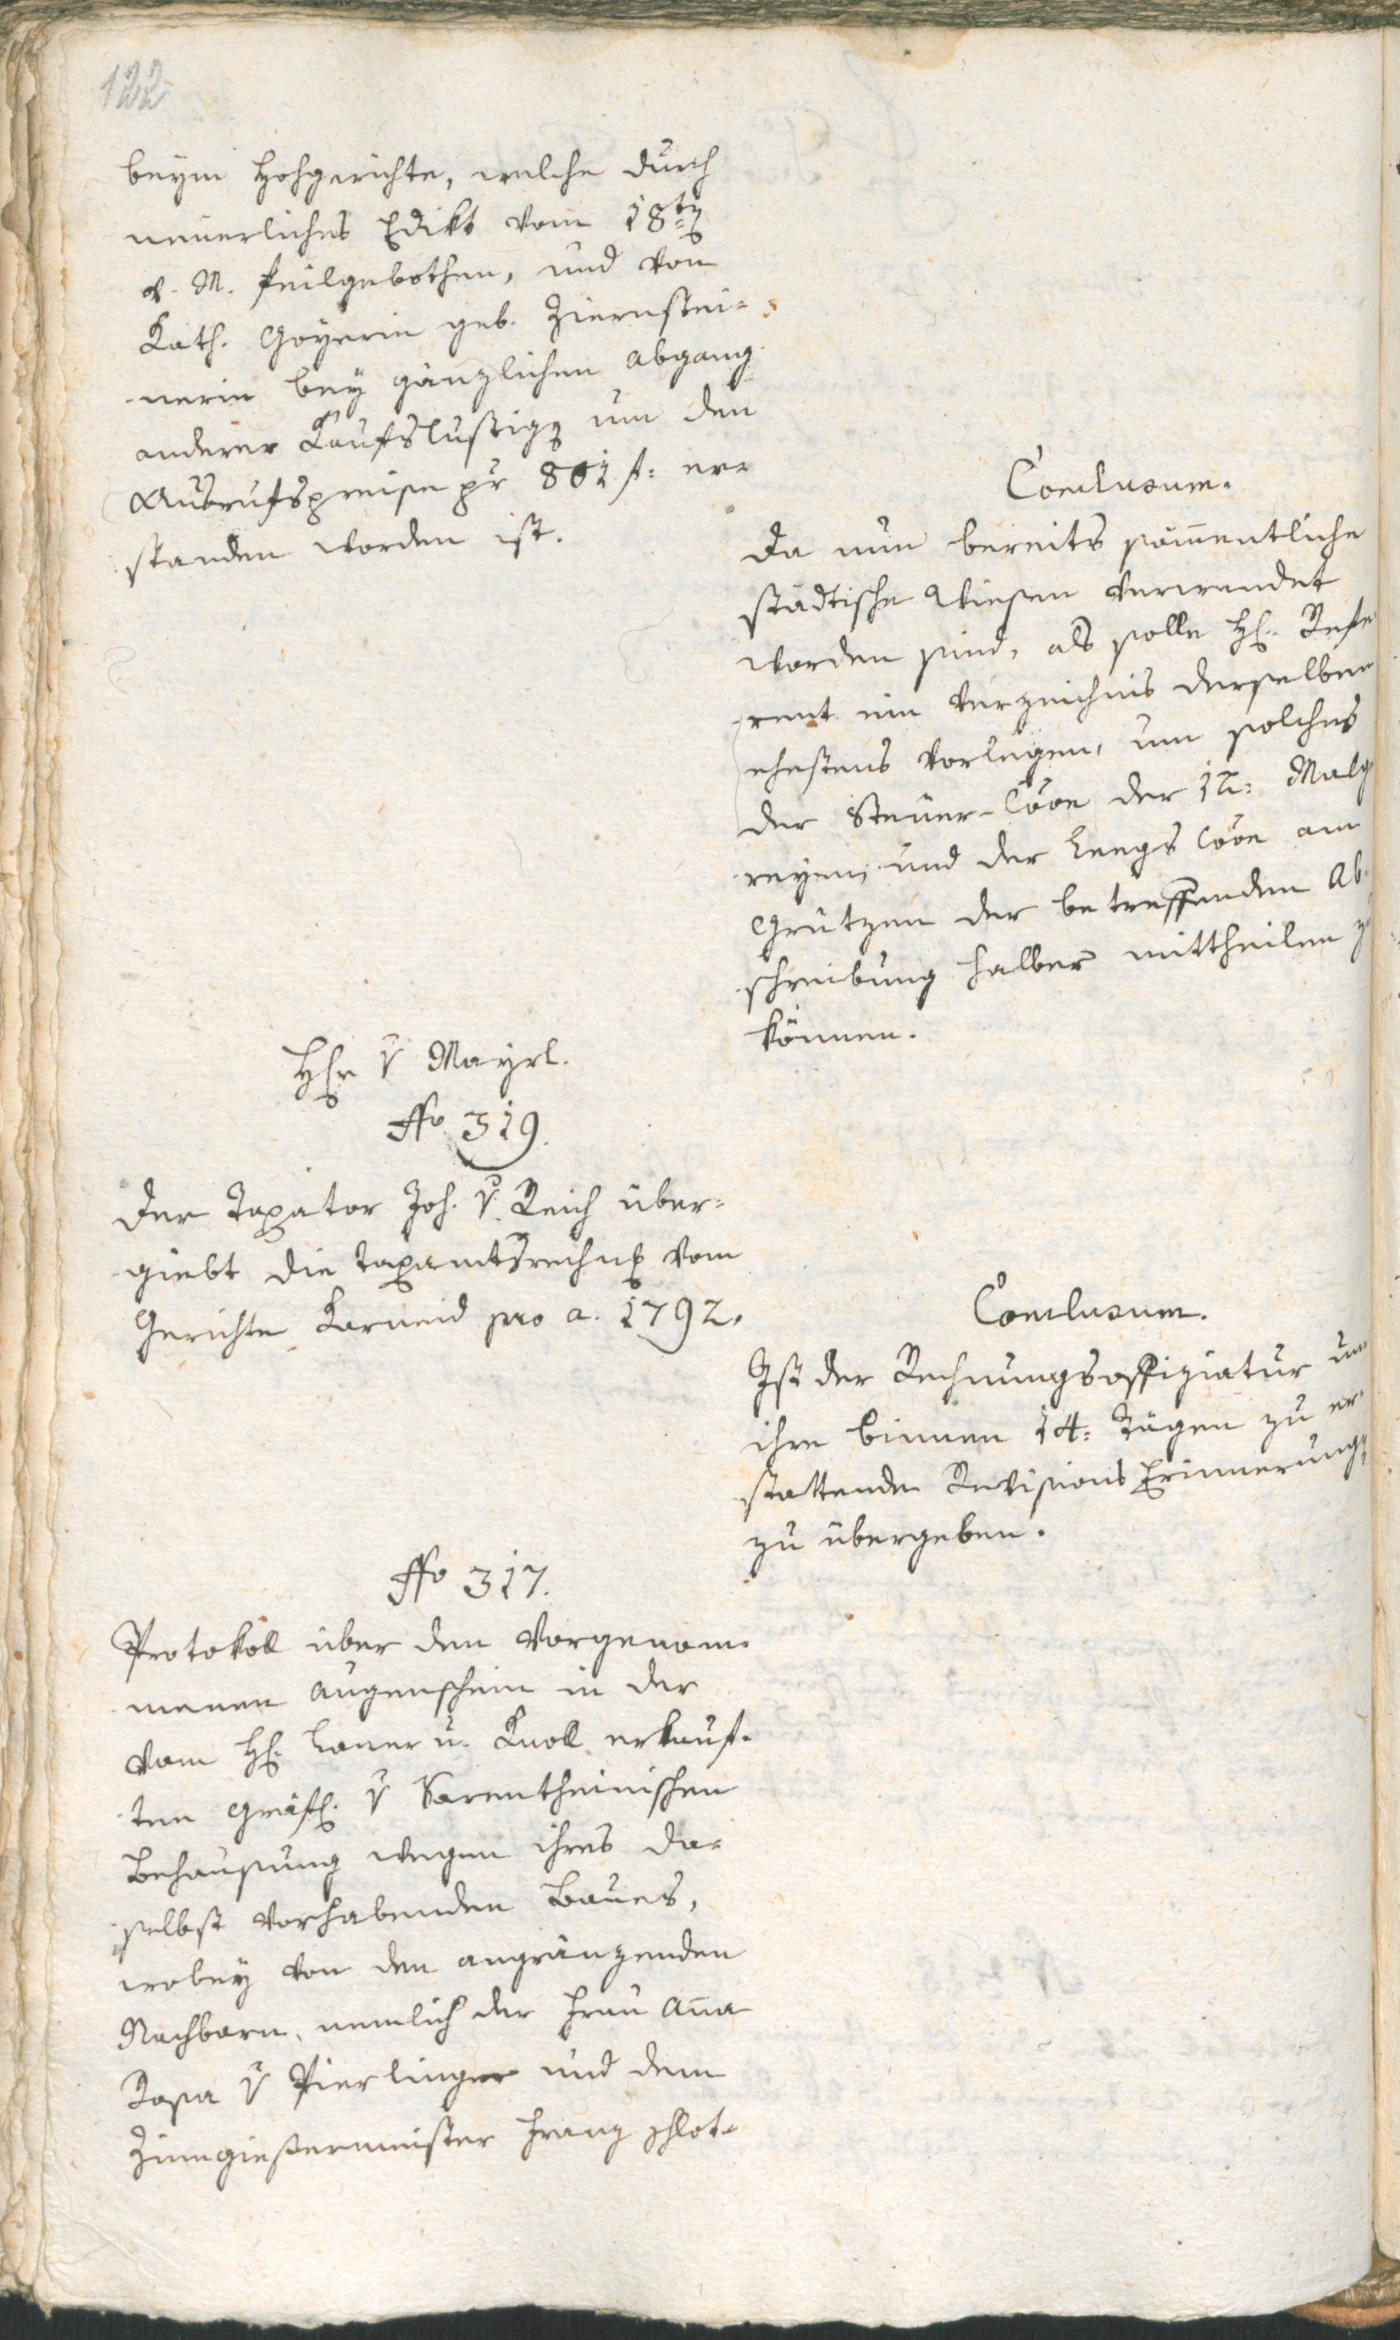 122
beym Hochgerichte, welche durch
neuerliches Edikt vom 18ten
v. M. feilgebothen, und vom
Kath. Goyerin geb. Ziernstei-
nerin bey gänzlichen Abgang
anderer Kaufslustigen um den
Ausrufspreise pr 801 f: er-
standen worden ist.
Conclusum.
Da nun bereits sämentliche
städtische Wiesen verwendet
worden sind, als solle H. Refe
rent ein Verzeichnis derselben
ehestens vorlegen, um solches
der Steuer-Cõon der 12: Malg
reyen und der Leegs Cõon am
Grützen der betreffenden Ab-
schreibung halber mittheilen z
können.
Hr v Mayrl.
No 319.
Der Taxator Joh. v. Reich über-
giebt die Taxamtsrechnung vom
Gerichte Karneid pro a. 1792.
Conclusum.
Ist der Rechnungsoffiziatur um
ihre binnen 14: Tägen zu er-
stattende Revisions Erinnerungen
zu übergeben.
No 317.
Protokoll über den vorgenom-
menen Augenschein in der
vom H. Laner u. Knoll erkauf-
ten Gräfl. v Sarentheinischen
Behausung wegen ihres da-
selbst vorhabenden Baues,
wobey von den angränzenden
Nachbarn, nemlich der Frau Aña
Rosa v Pierlinger und dem
Zinngießermeister Franz Schlot-